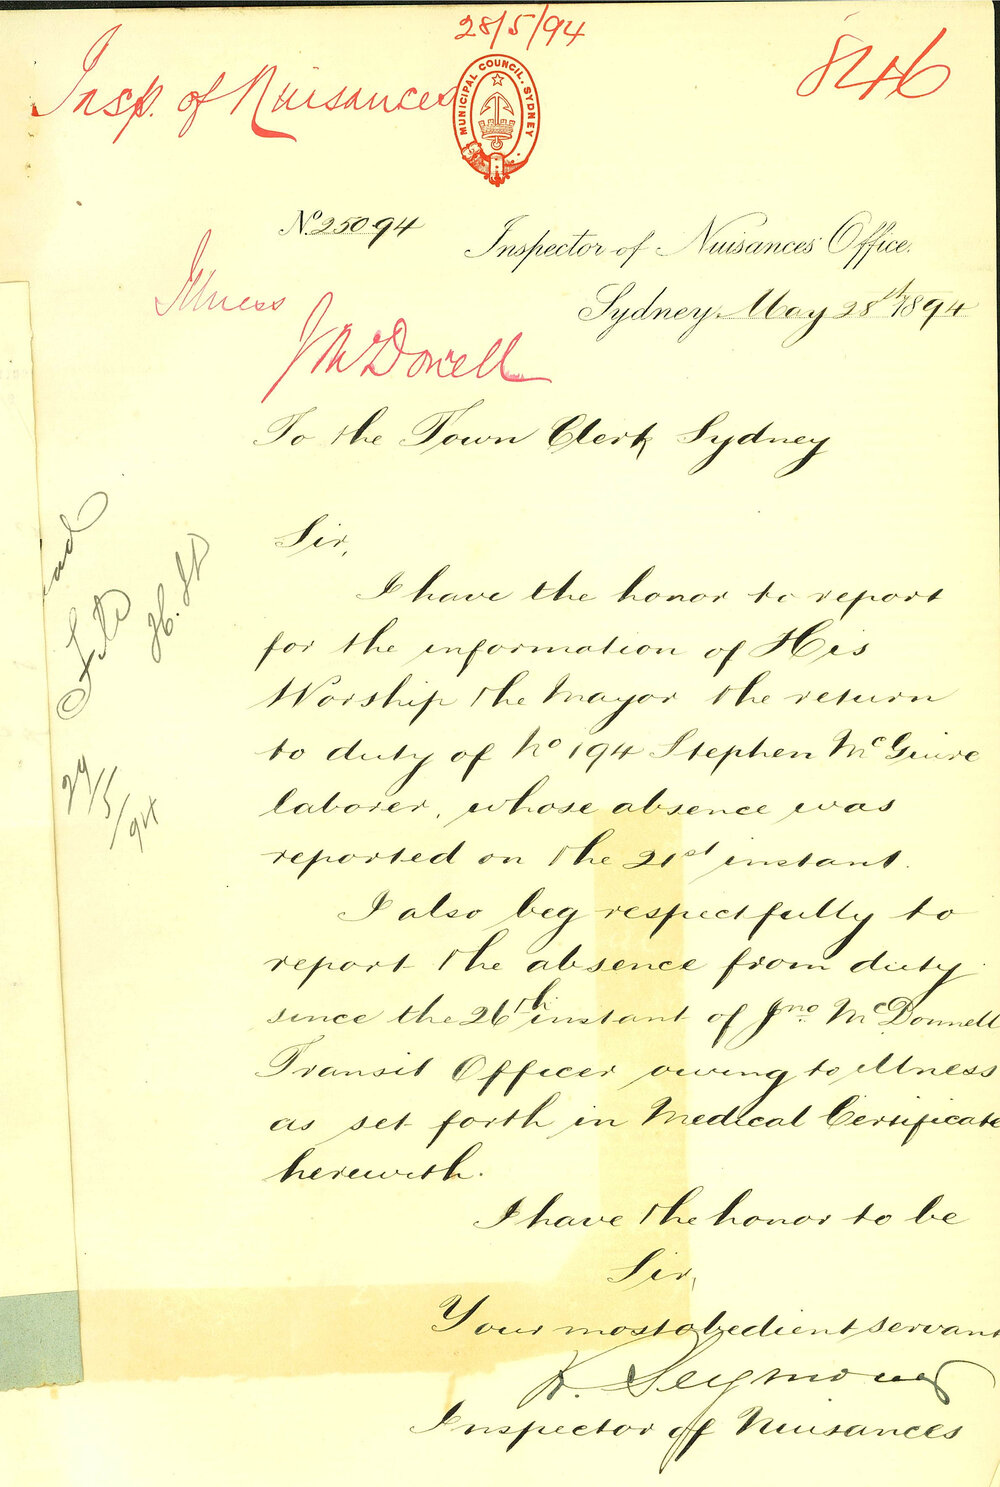 28/5/94
846
Insp. of Nuisances
MUNICIPAL COUNCIL. SYDNEY
No. 250.94
Inspector of Nuisances Office.
Illness
Sydney, May 28th 1894
J McDonell
To the Town Clerk Sydney
Sir,
I have the honor to report
for the information of His
Worship the Mayor the return
to duty of No 194 Stephen McGuire
laborer, whose absence was
reported on the 21st instant.
I also beg respectfully to
report the absence from duty
since the 26th instant of Jno. McDonnell
Transit Officer owing to illness
as set forth in Medical Certificate
herewith.
I have the honor to be
Sir,
Your most obedient servant
R. Seymour
Inspector of Nuisances
29/5/94